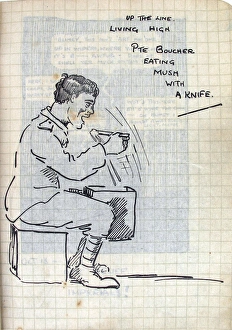 UP THE LINE
LIVING HIGH
PTE BOUCHER
EATING
MUSH
WITH
A KNIFE.